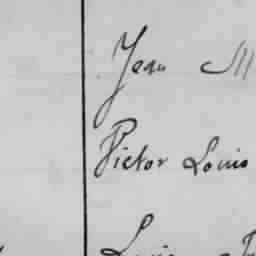 Jean M
Victor Louis
Louis